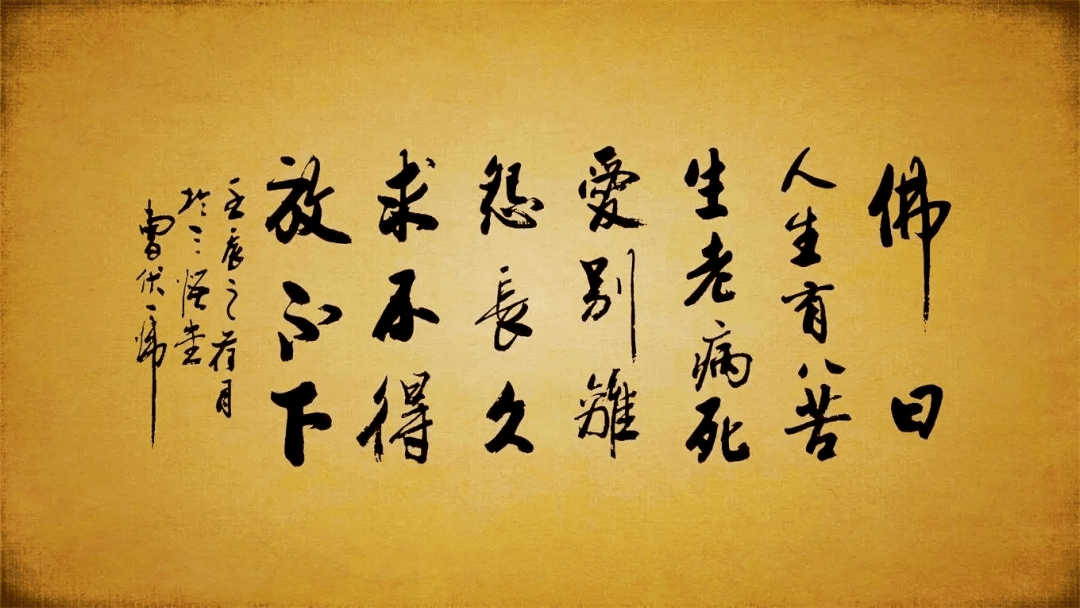 佛曰
人生有八苦
生老病死
愛別離
怨長久
求不得
放不下
壬辰之荷月
於三悟堂
曹伏